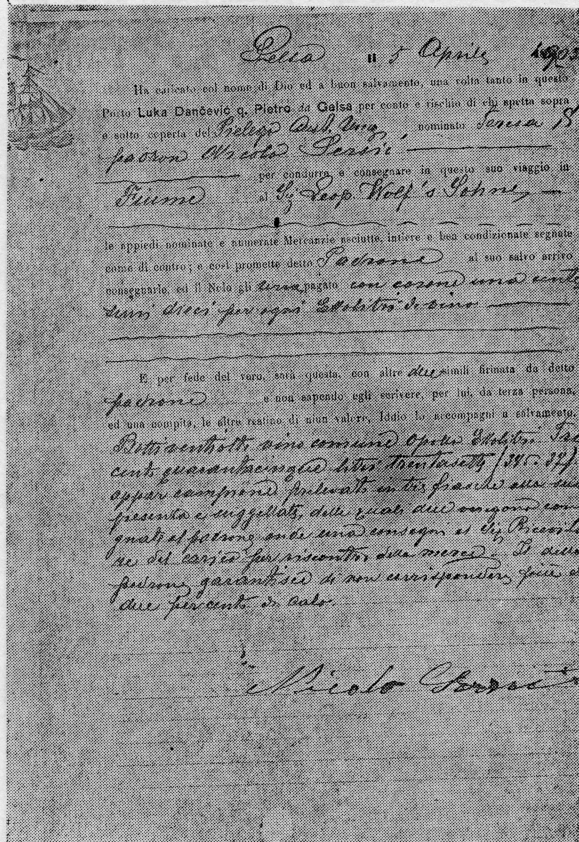 Gelsa il 5 Aprile 1903
Ha caricato col nome di Dio ed a buon salvamento, una volta tanto in questo
Porto Luka Dančević q. Pietro da Gelsa per conto e rischio di chi spetta sopra
e sotto coperta del Pielego Aust. Ung. nominato Teresa B
padron Nicolò Persić
per condurre e consegnare in questo suo viaggio in
Fiume al Sig Leop. Wolf's Sohne
le appiedi nominate e numerate Mercanzie asciutte, intiere e ben condizionate segnate
come di contro; e così promette detto Padrone al suo salvo arrivo
consegnarle, ed il Nolo gli verrà pagato con corone una cente
simi dieci per ogni Ettolitro di vino
E per fede del vero, sarà questa, con altre due simili firmata da detto
padrone e non sapendo egli scrivere, per lui, da terza persona,
ed una compita, le altre restino di niun valore. Iddio lo accompagni a salvamento.
Botti ventiotto vino comune opollo Ettolitri Tre
cento quarantacinque litri trentasette (345.37)
appar campione prelevato in tre fiasche alla sua
presenza e suggellate, delle quali due vengono conse
gnate al padrone onde una consegni al Sig Ricevito
re del carico per riscontro della merce. Il detto
padrone garantisce di non corrispondere più
due per cento di calo.
Nicolo Persić